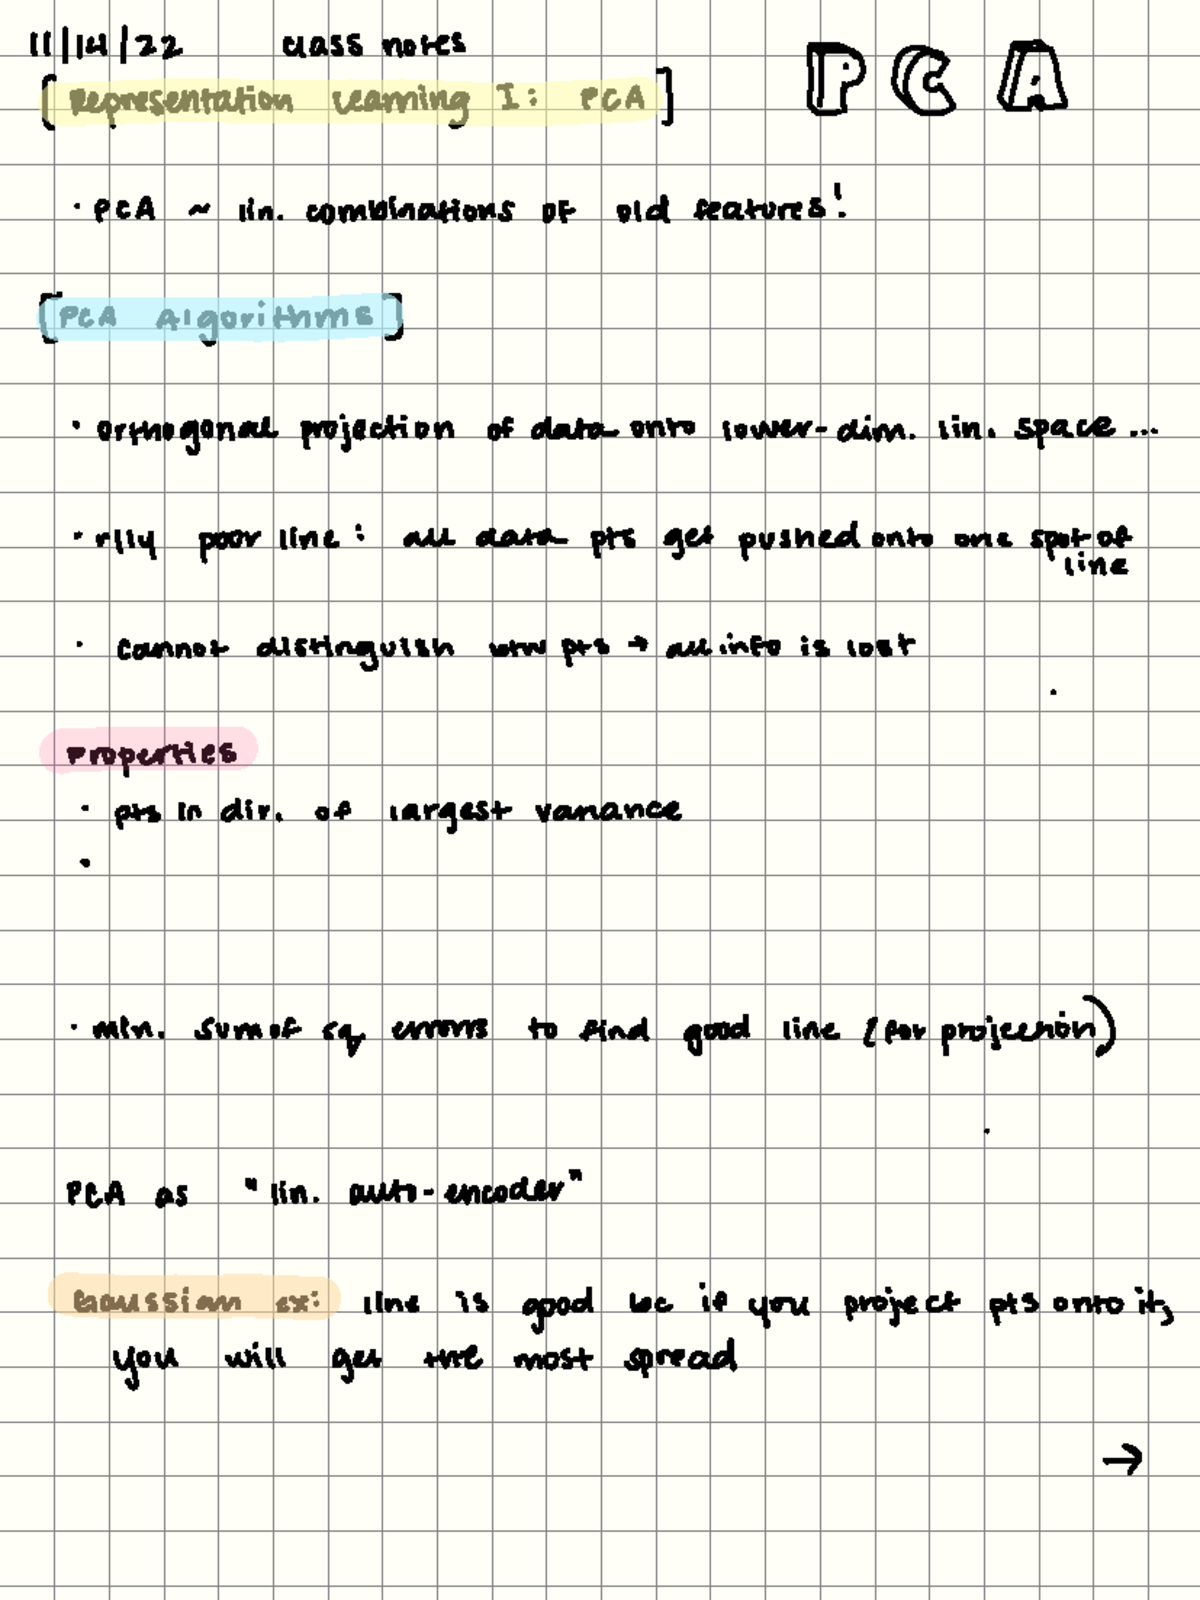 11/14/22 class notes
PCA
[Representation Learning I: PCA]
· PCA ~ lin. combinations of old features!
[PCA Algorithms]
· orthogonal projection of data onto lower-dim. lin. space ...
· rlly poor line: all data pts get pushed onto one spot of
line
· cannot distinguish btw pts → all info is lost
Properties
· pts in dir. of largest variance
·
· min. sum of sq errors to find good line (for projection)
PCA as "lin. auto-encoder"
Gaussian ex: line is good bc if you project pts onto it,
you will get the most spread
→